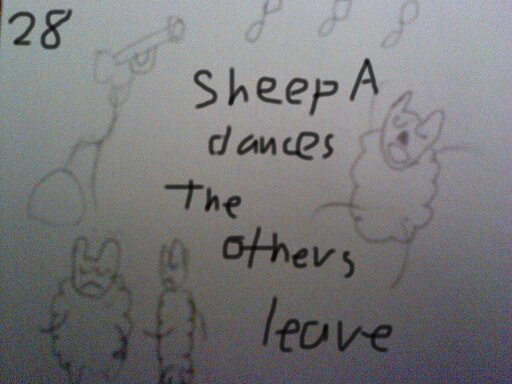 28
Sheep A
dances
The
others
leave